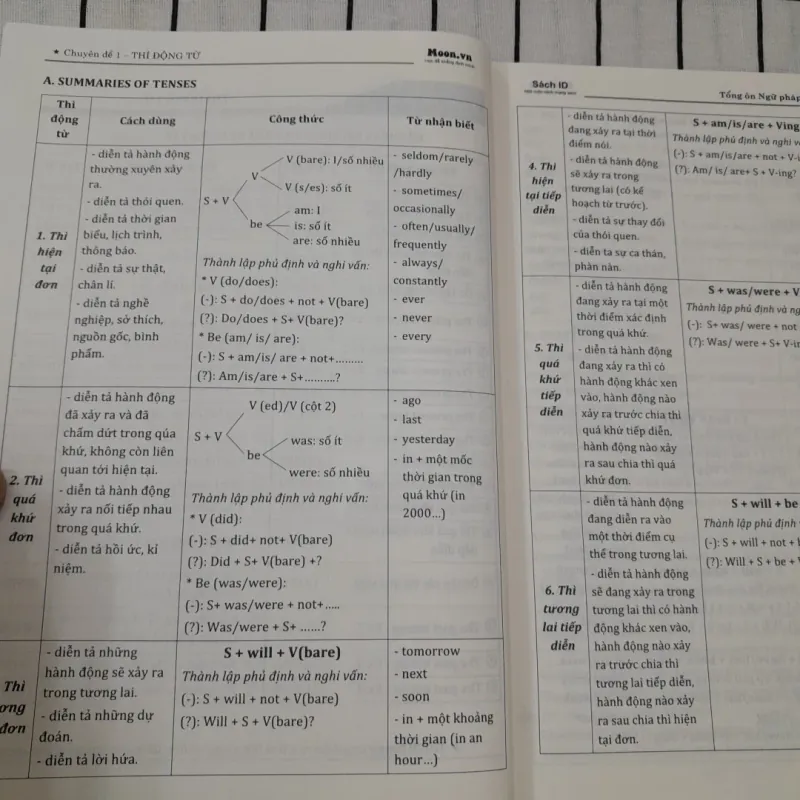 ★ Chuyên đề 1 – THÌ ĐỘNG TỪ
Moon.vn
A. SUMMARIES OF TENSES
Thì động từ
Cách dùng
Công thức
Từ nhận biết
1. Thì
hiện
tại
đơn
- diễn tả hành động
thường xuyên xảy
ra.
- diễn tả thói quen.
- diễn tả thời gian
biểu, lịch trình,
thông báo.
- diễn tả sự thật,
chân lí.
- diễn tả nghề
nghiệp, sở thích,
nguồn gốc, bình
phẩm.
V (bare): I/số nhiều
V
V (s/es): số ít
S + V
am: I
be
is: số ít
are: số nhiều
Thành lập phủ định và nghi vấn:
* V (do/does):
(-): S + do/does + not + V(bare)
(?): Do/does + S+ V(bare)?
* Be (am/ is/ are):
(-): S + am/is/ are + not+.........
(?): Am/is/are + S+..........?
- seldom/rarely
/hardly
- sometimes/
occasionally
- often/usually/
frequently
- always/
constantly
- ever
- never
- every
2. Thì
quá
khứ
đơn
- diễn tả hành động
đã xảy ra và đã
chấm dứt trong qúa
khứ, không còn liên
quan tới hiện tại.
- diễn tả hành động
xảy ra nối tiếp nhau
trong quá khứ.
- diễn tả hồi ức, kỉ
niệm.
V (ed)/V (cột 2)
S + V
was: số ít
be
were: số nhiều
Thành lập phủ định và nghi vấn:
* V (did):
(-): S + did+ not+ V(bare)
(?): Did + S+ V(bare) +?
* Be (was/were):
(-): S+ was/were + not+.....
(?): Was/were + S+ ......?
- ago
- last
- yesterday
- in + một mốc
thời gian trong
quá khứ (in
2000...)
Thì
ơng
đơn
- diễn tả những
hành động sẽ xảy ra
trong tương lai.
- diễn tả những dự
đoán.
- diễn tả lời hứa.
S + will + V(bare)
Thành lập phủ định và nghi vấn:
(-): S + will + not + V(bare)
(?): Will + S + V(bare)?
- tomorrow
- next
- soon
- in + một khoảng
thời gian (in an
hour...)
Sách ID
Tổng ôn Ngữ pháp
4. Thì
hiện
tại tiếp
diễn
- diễn tả hành động
đang xảy ra tại thời
điểm nói.
- diễn tả hành động
sẽ xảy ra trong
tương lai (có kế
hoạch từ trước).
- diễn tả sự thay đổi
của thói quen.
- diễn ta sự ca thán,
phàn nàn.
S + am/is/are + Ving
Thành lập phủ định và nghi v
(-): S + am/is/are + not + V-i
(?): Am/ is/ are+ S + V-ing?
5. Thì
quá
khứ
tiếp
diễn
- diễn tả hành động
đang xảy ra tại một
thời điểm xác định
trong quá khứ.
- diễn tả hành động
đang xảy ra thì có
hành động khác xen
vào, hành động nào
xảy ra trước chia thì
quá khứ tiếp diễn,
hành động nào xảy
ra sau chia thì quá
khứ đơn.
S + was/were + V
Thành lập phủ định và ngh
(-): S+ was/ were + not
(?): Was/ were + S+ V-in
6. Thì
tương
lai tiếp
diễn
- diễn tả hành động
đang diễn ra vào
một thời điểm cụ
thể trong tương lai.
- diễn tả hành động
sẽ đang xảy ra trong
tương lai thì có hành
động khác xen vào,
hành động nào xảy
ra trước chia thì
tương lai tiếp diễn,
hành động nào xảy
ra sau chia thì hiện
tại đơn.
S + will + be
Thành lập phủ định
(-): S + will + not +
(?): Will + S + be +